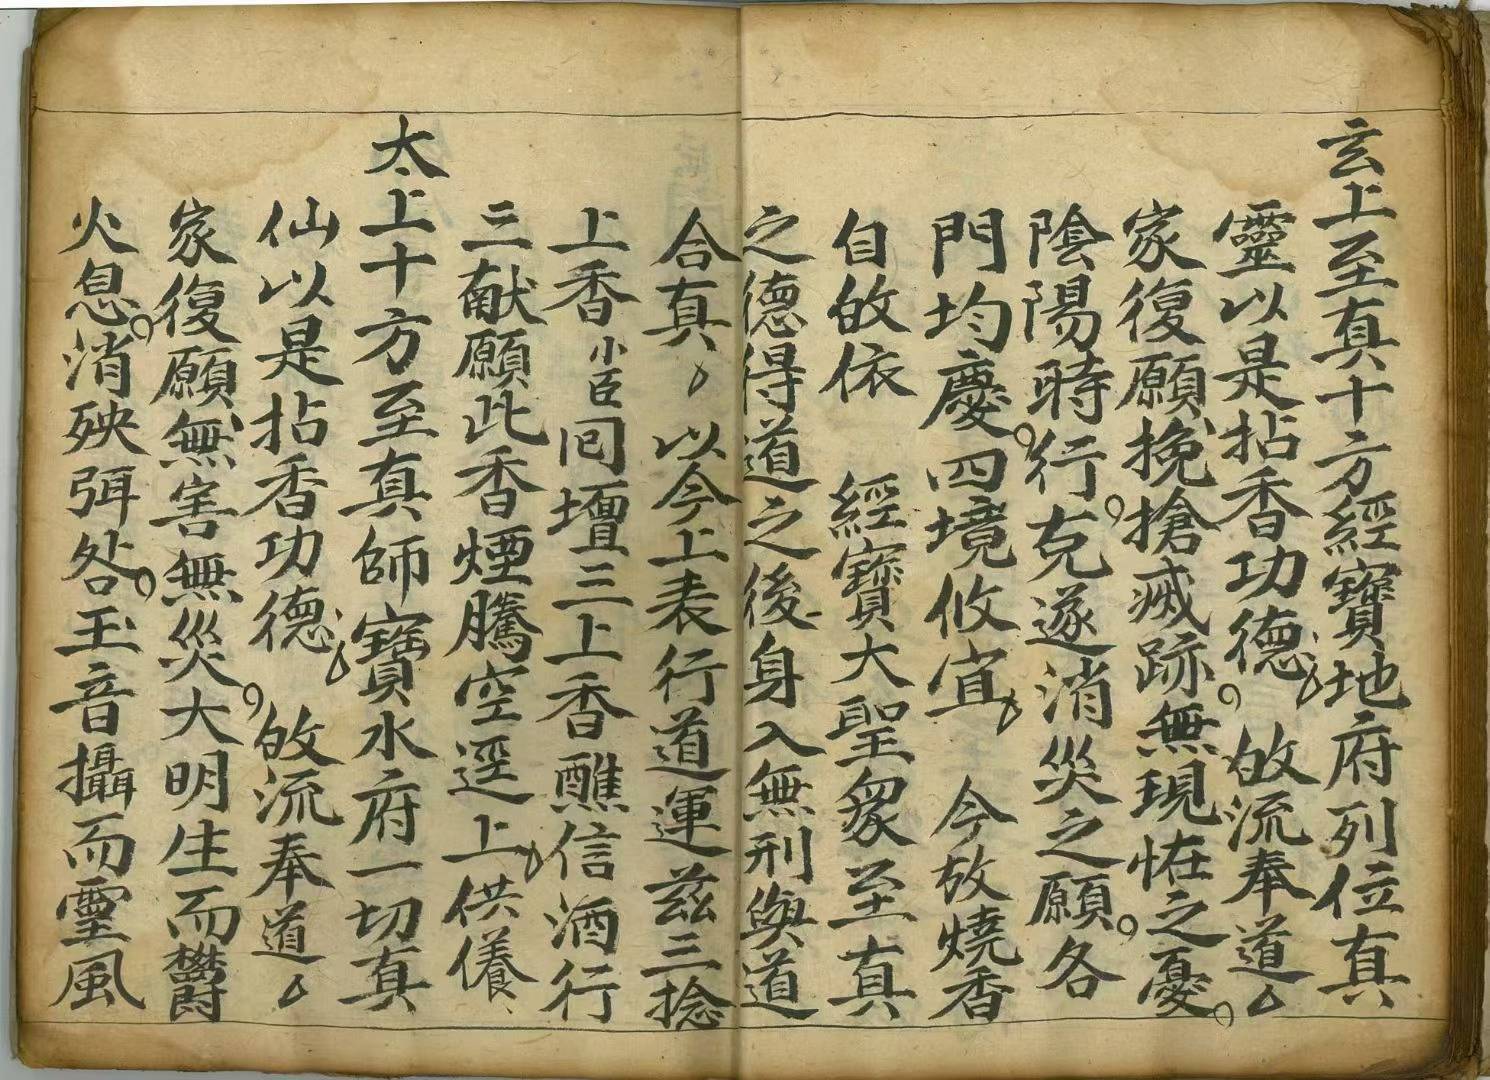 玄上至真十方經寶地府列位真
靈以是拈香功德攸流奉道
家復願挽搶㓕跡無現恠之憂
陰陽時行克遂消災之願各
門均慶四境攸宜 今放燒香
自攸依 經寶大聖眾至真
之德得道之後身入無刑與道
合真 以今上表行道運茲三捻
上香小臣囘壇三上香醮信酒行
三献願此香煙騰空逕上供養
太上十方至真師寶水府一切真
仙以是拈香功德 攸流奉道
家復願無害無災大明生而欝
火息消殃弭咎玉音攝而靈風